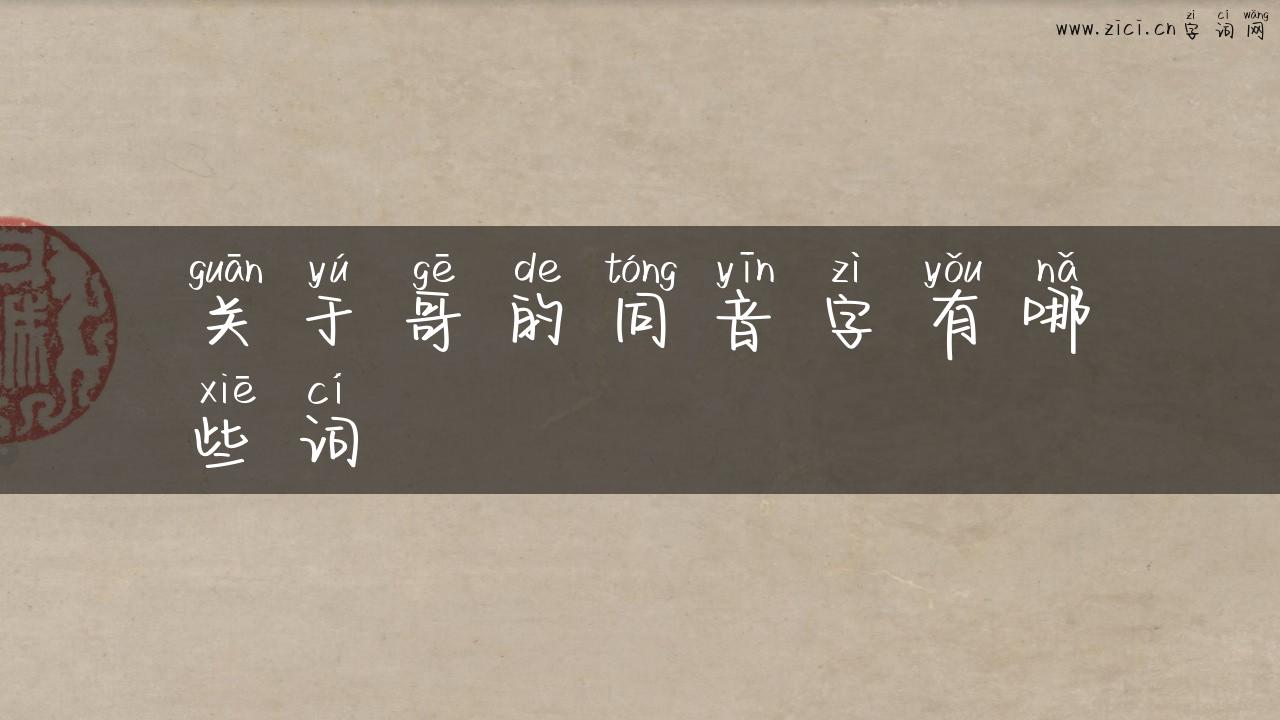 zì cí wǎng
www.zici.cn 字词网
guān yú gē de tóng yīn zì yǒu nǎ
关于哥的同音字有哪
xiē cí
些词